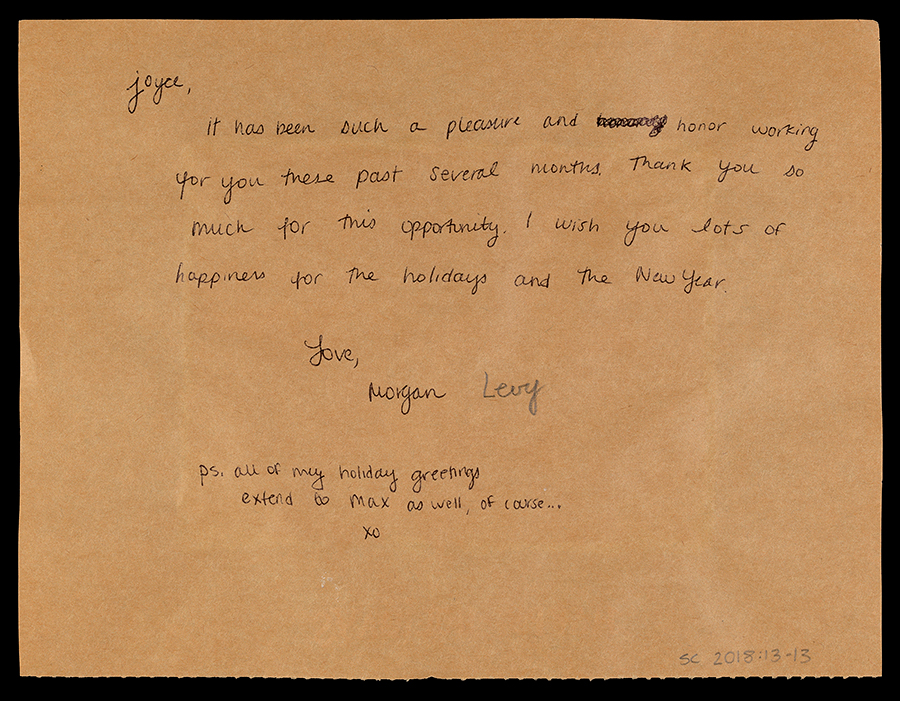 joyce,
It has been such a pleasure and honor working
for you these past several months. Thank you so
much for this opportunity. I wish you lots of
happiness for the holidays and the New Year.
Love,
Morgan Levy
ps. all of my holiday greetings
extend to Max as well, of course...
xo
SC 2018:13-13